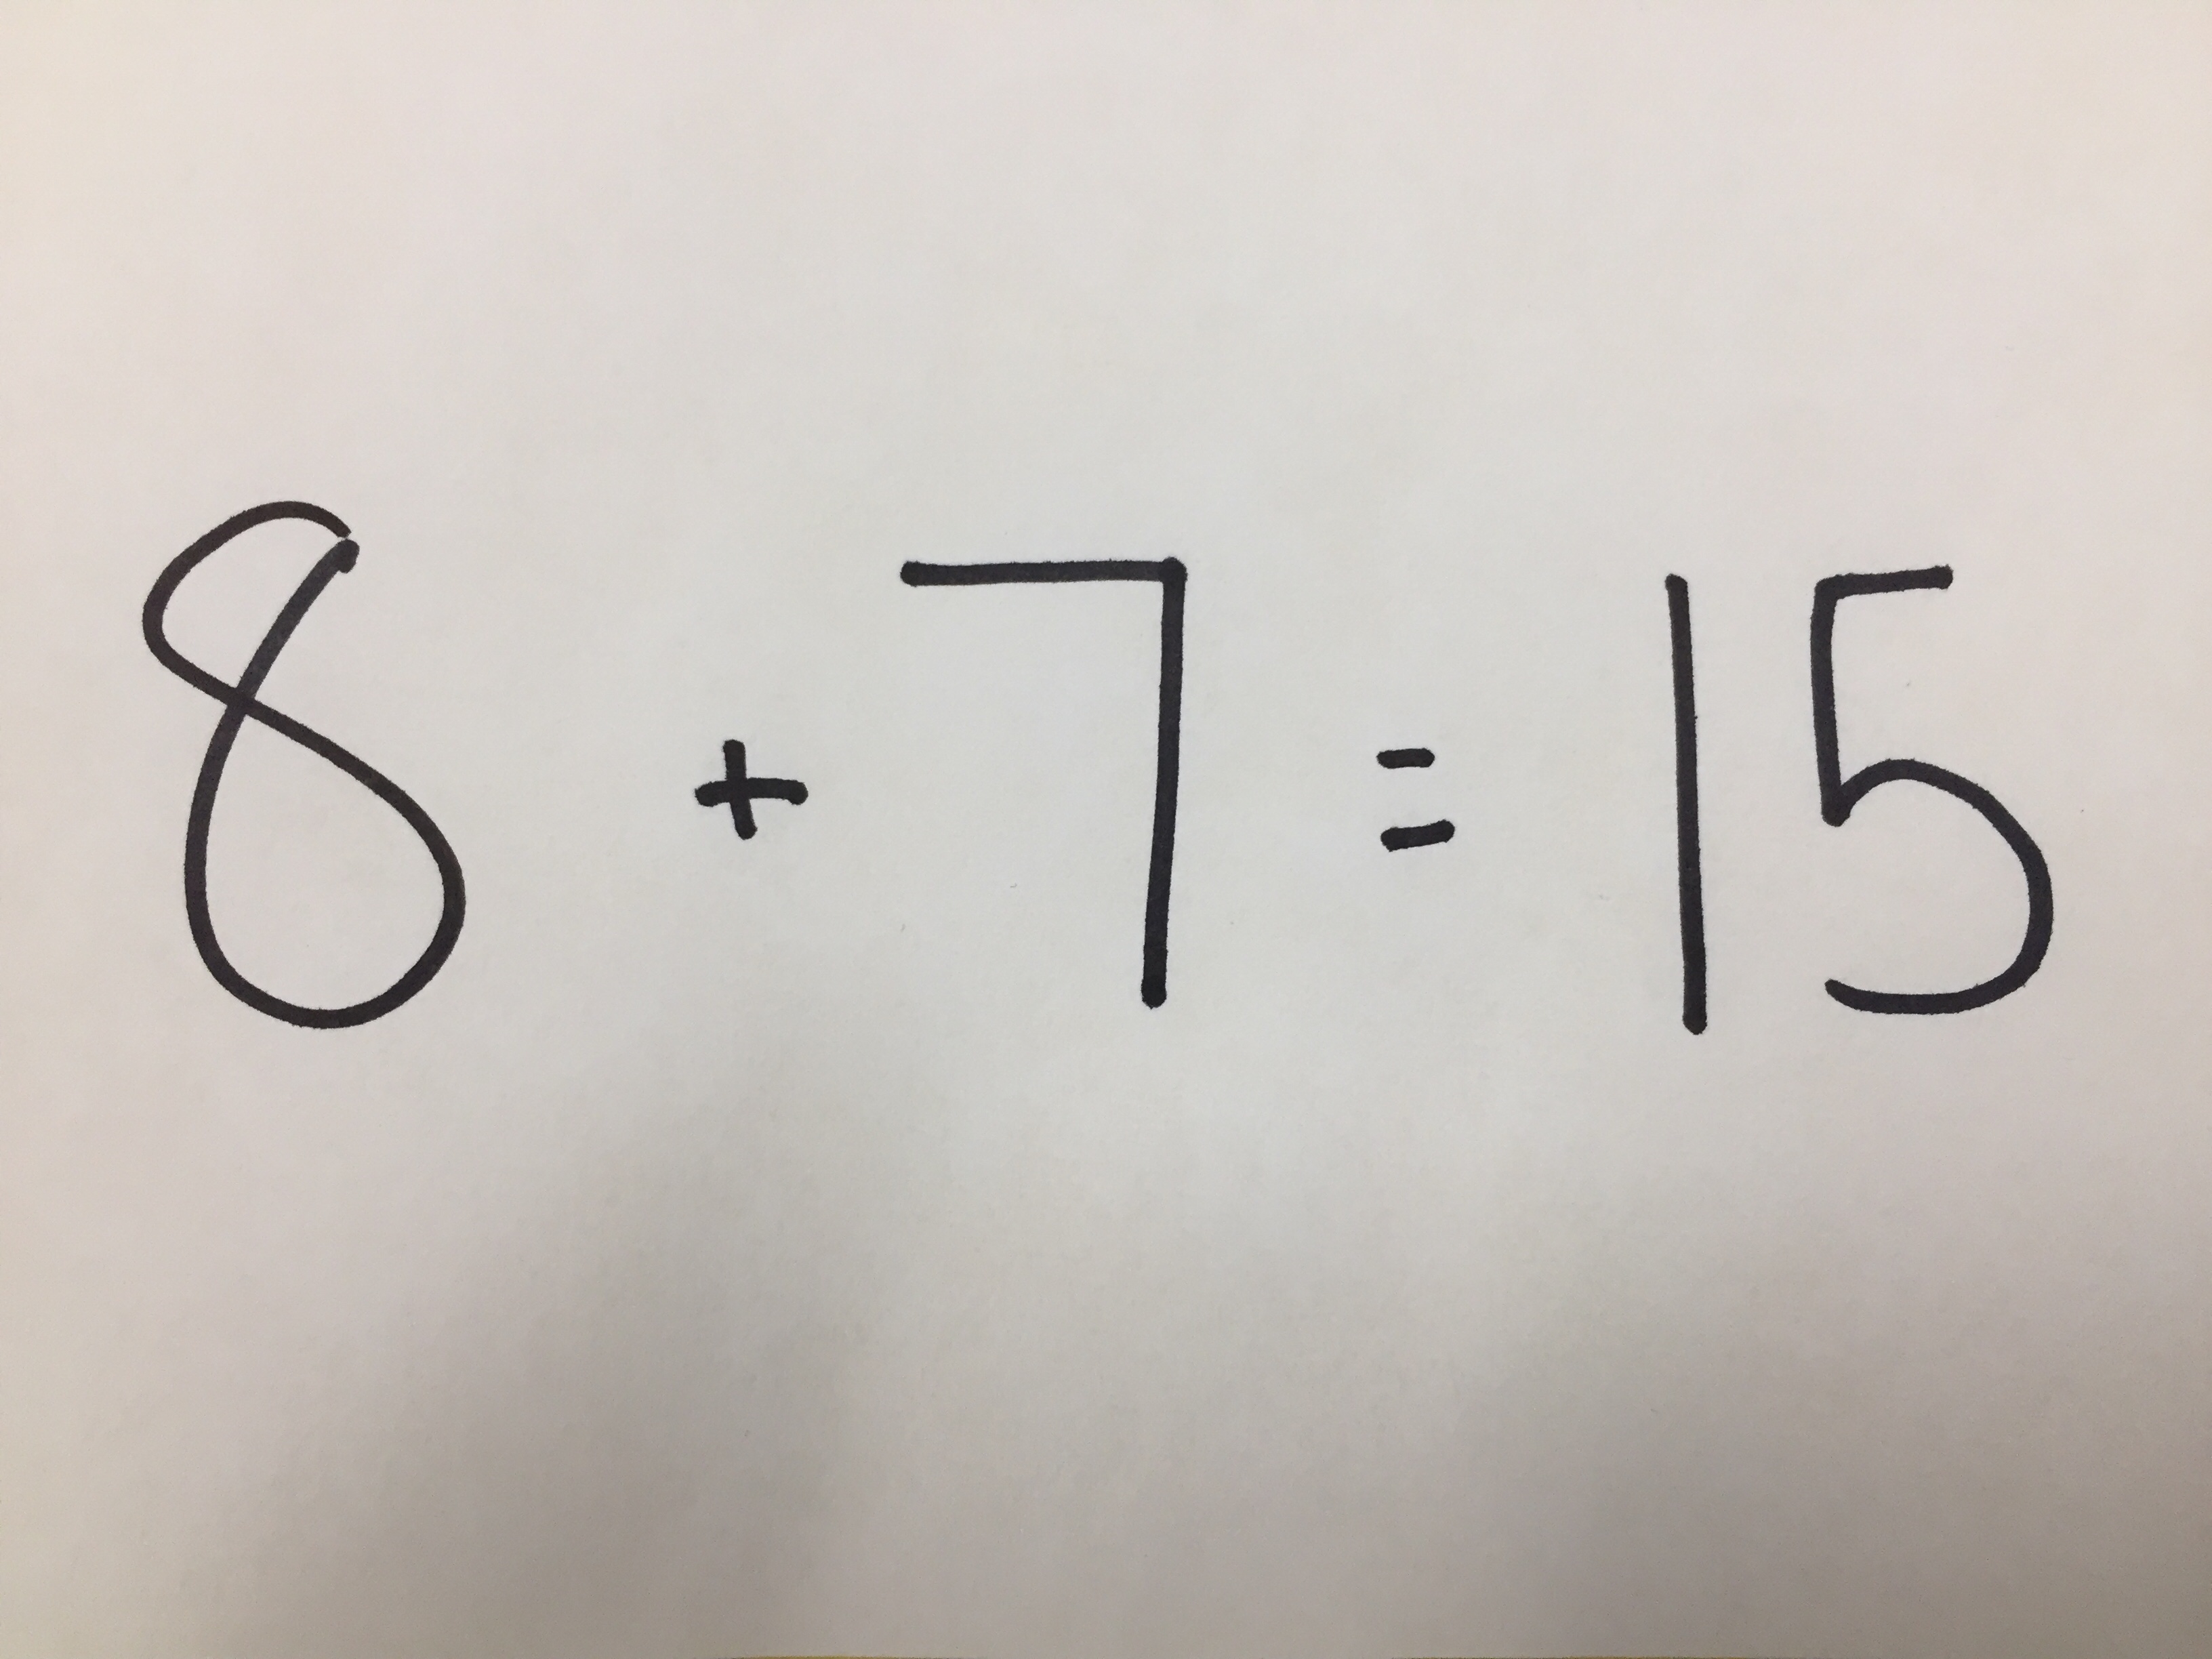 8 + 7 = 15